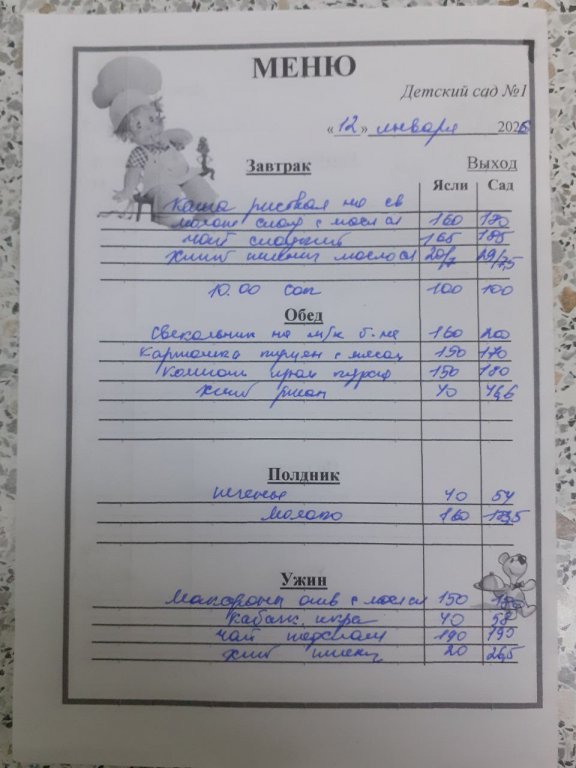 МЕНЮ
Детский сад №1
«12» января 2026
Завтрак Выход
Ясли Сад
каша рисовая на св
молоке слад с маслом 160 170
чай сладкий 165 185
хлеб пшенич маслом 20/7 29/7,5
10.00 сок 100 100
Обед
Свекольник на м/к б-не 160 200
Картошка тушен с мясом 150 170
Компот 150 180
хлеб ржан 40 46,6
Полдник
печенье 40 54
молоко 160
Ужин
Макароны отв с маслом 150
кабачк. икра 40 58
чай 190 190
хлеб пшенич 20 26,5